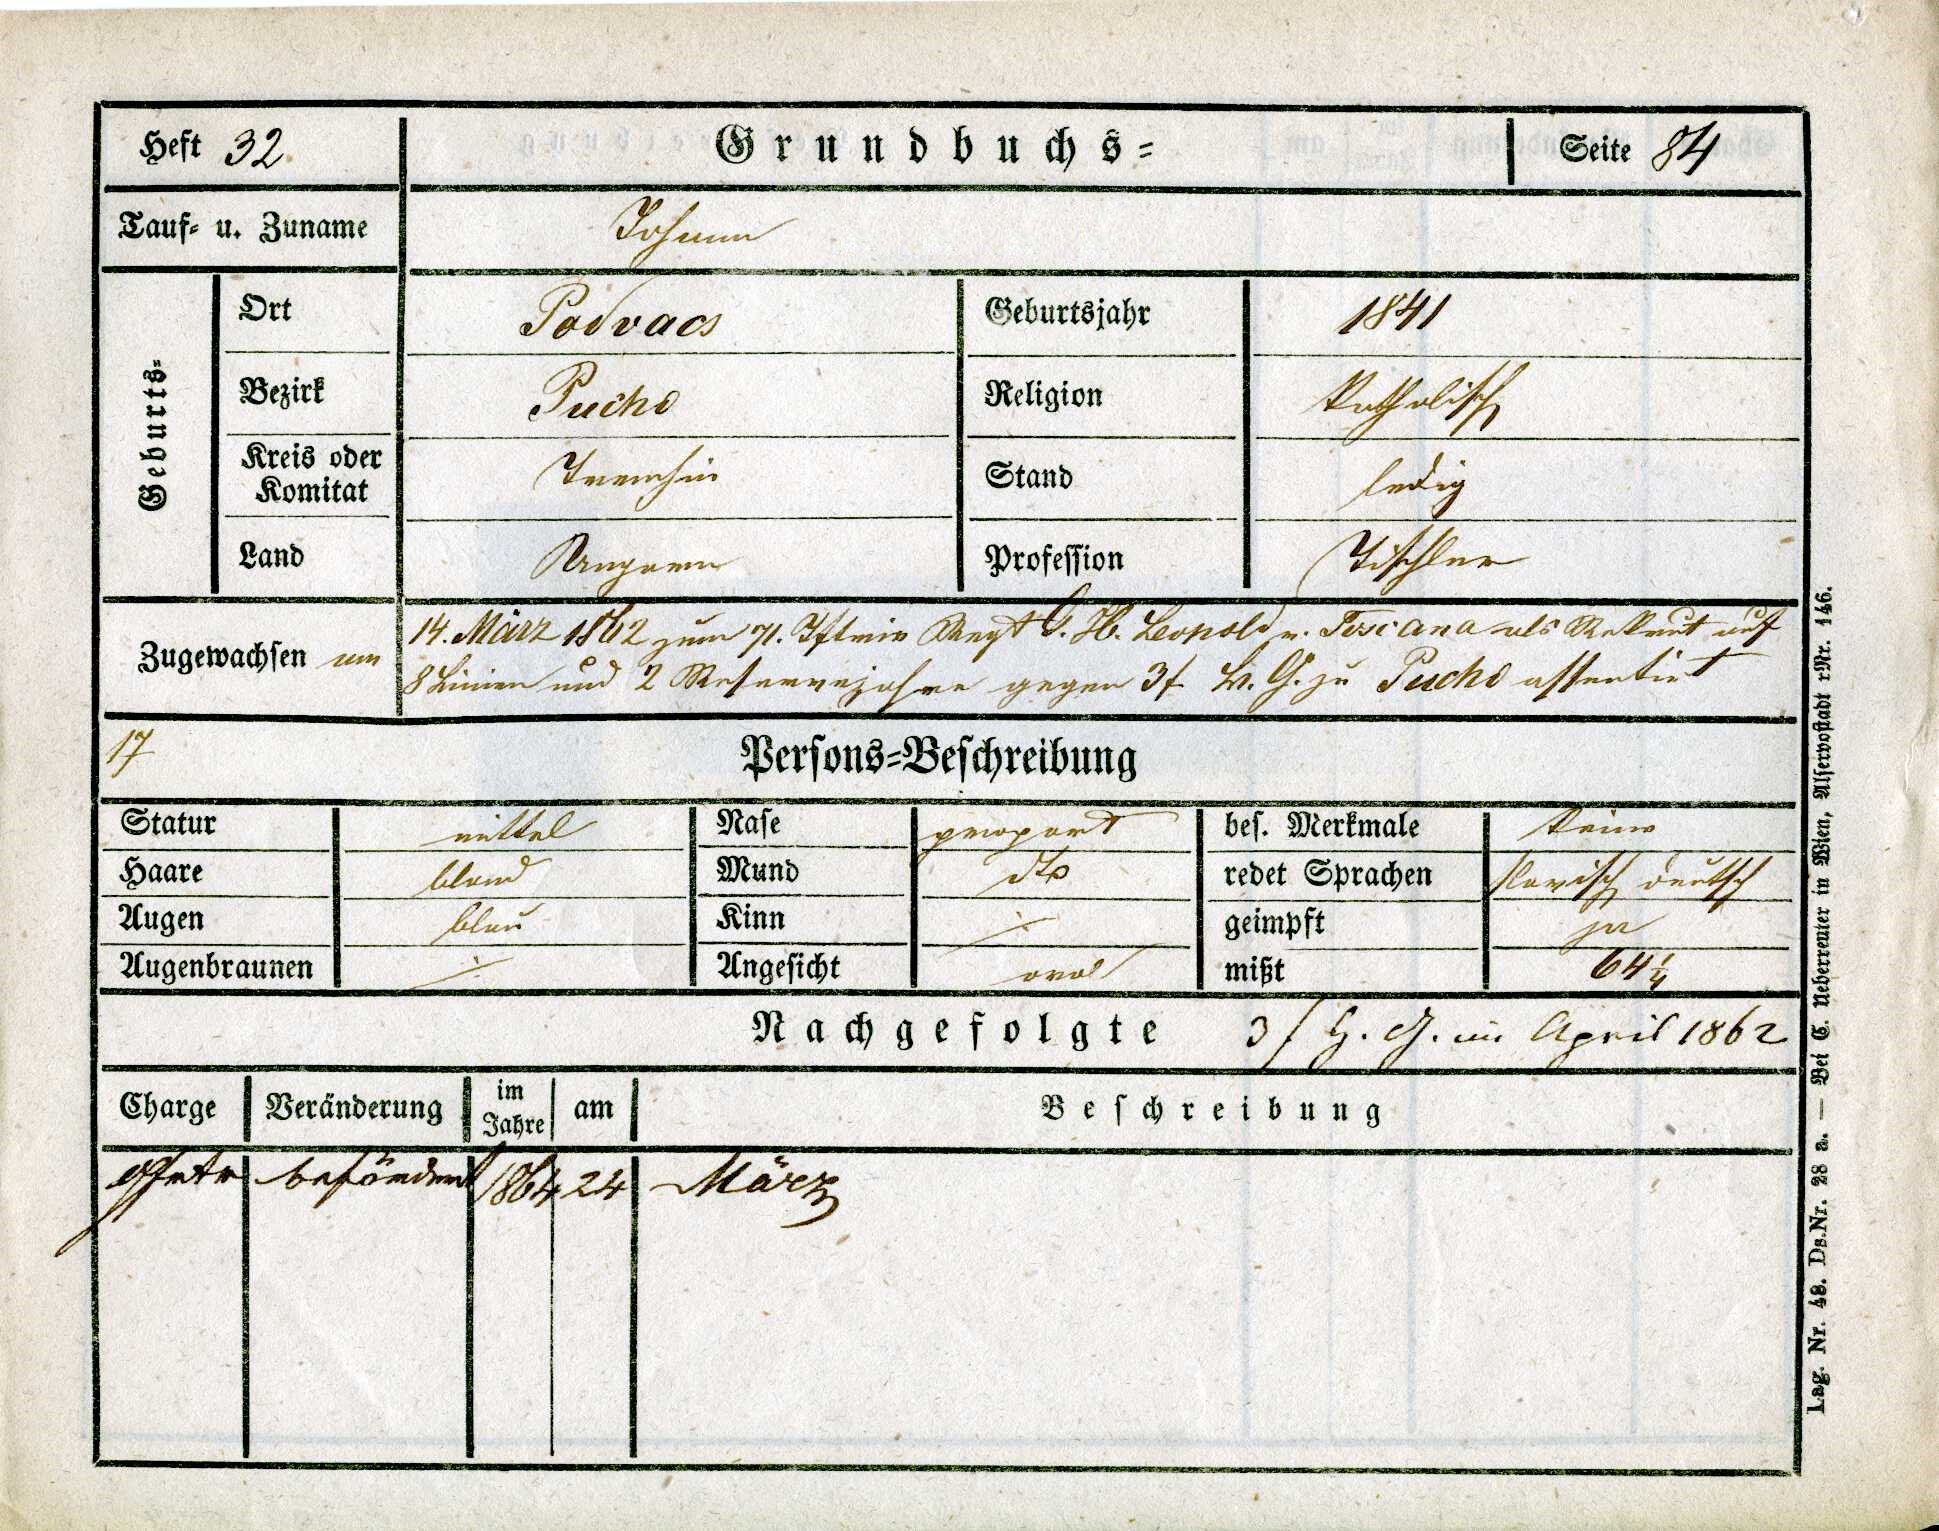 Heft 32 Grundbuchs= Seite 84
Tauf= u. Zuname Johann
Geburts=
Ort Podvacs Geburtsjahr 1841
Bezirk Pucho Religion Katholisch
Kreis oder Komitat Trenchin Stand ledig
Land Ungarn Profession Tischler
Zugewachsen am 14. März 1862 zum 71. Regt G. H. Leopold v. Toscana als Rekrut auf
8 Linien und 2 Reservejahre gegen 3 f H. G. zu Pucho assentirt
17 Persons=Beschreibung
Statur mittel Nase proport bes. Merkmale keine
Haare blond Mund dto redet Sprachen slavisch deutsch
Augen blau Kinn ÷ geimpft ja
Augenbraunen ÷ Angesicht oval mißt 64 1/4
Nachgefolgte 3 f H. G. im April 1862
Charge Veränderung im Jahre am Beschreibung
befördert 1864 24 März
Lag. Nr. 48. Ds.Nr. 28 a. — Bei C. Ueberreuter in Wien, Alservostadt rNr. 146.